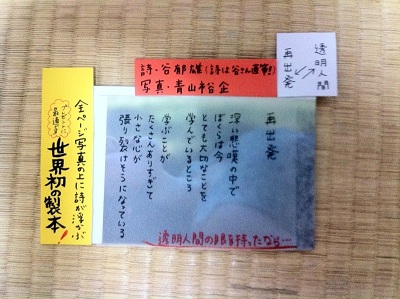 透明人間
再出発
詩・谷郁雄(詩は谷さん直筆!)
写真・青山裕企
再出発
深い悲嘆の中で
ぼくらは今
とても大切なことを
学んでいるところ
学ぶことが
たくさんありすぎて
小さな心が
張り裂けそうになっている
透明人間の眼を持ったなら…
全ページ写真の上に詩が浮かぶ
世界初の製本!
プレゼントに
最適!